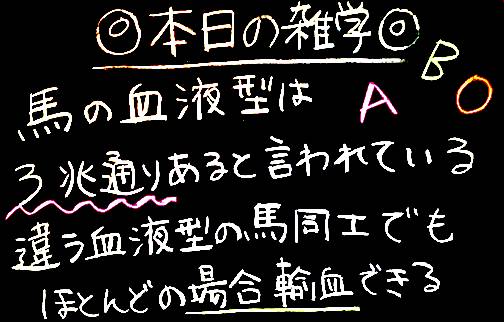 ◎本日の雑学◎
B
馬の血液型は A O
3兆通りあると言われている
違う血液型の馬同士でも
ほとんどの場合輸血できる